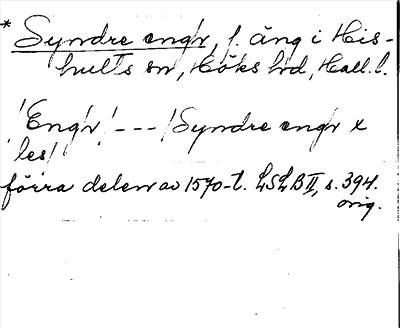 * Syndre engr, f. äng i His-
hults sn, Höks hd, Hall. l.
'Engr' --- 'Syndre engr x
les'
förra delen av 1570-t. LSLB II, s. 394.
orig.